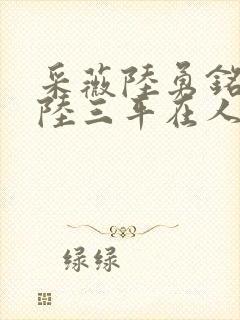 采薇陸勇銘
陸三年在人
绿绿